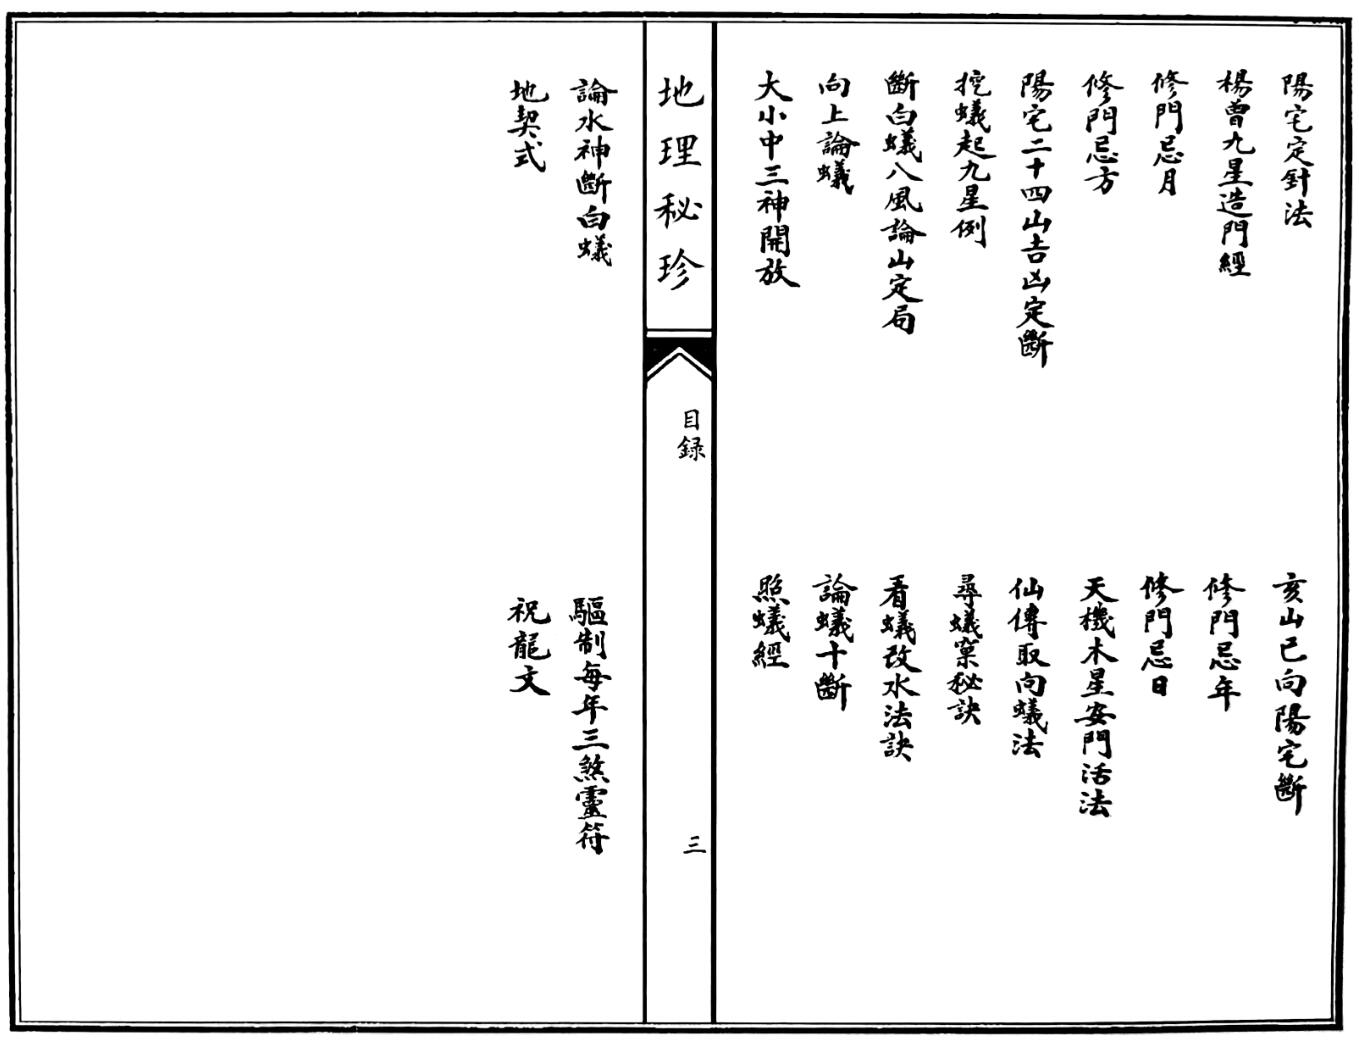 陽宅定針法
亥山已向陽宅斷
楊曾九星造門經
修門忌年
修門忌月
修門忌日
修門忌方
天機木星安門活法
陽宅二十四山吉凶定斷
仙傳取向蟻法
挖蟻起九星例
尋蟻窠秘訣
斷白蟻八風論山定局
看蟻改水法訣
向上論蟻
論蟻十斷
大小中三神開放
照蟻經
地理秘珍
目録
三
論水神斷白蟻
驅制每年三煞靈符
地契式
祝龍文